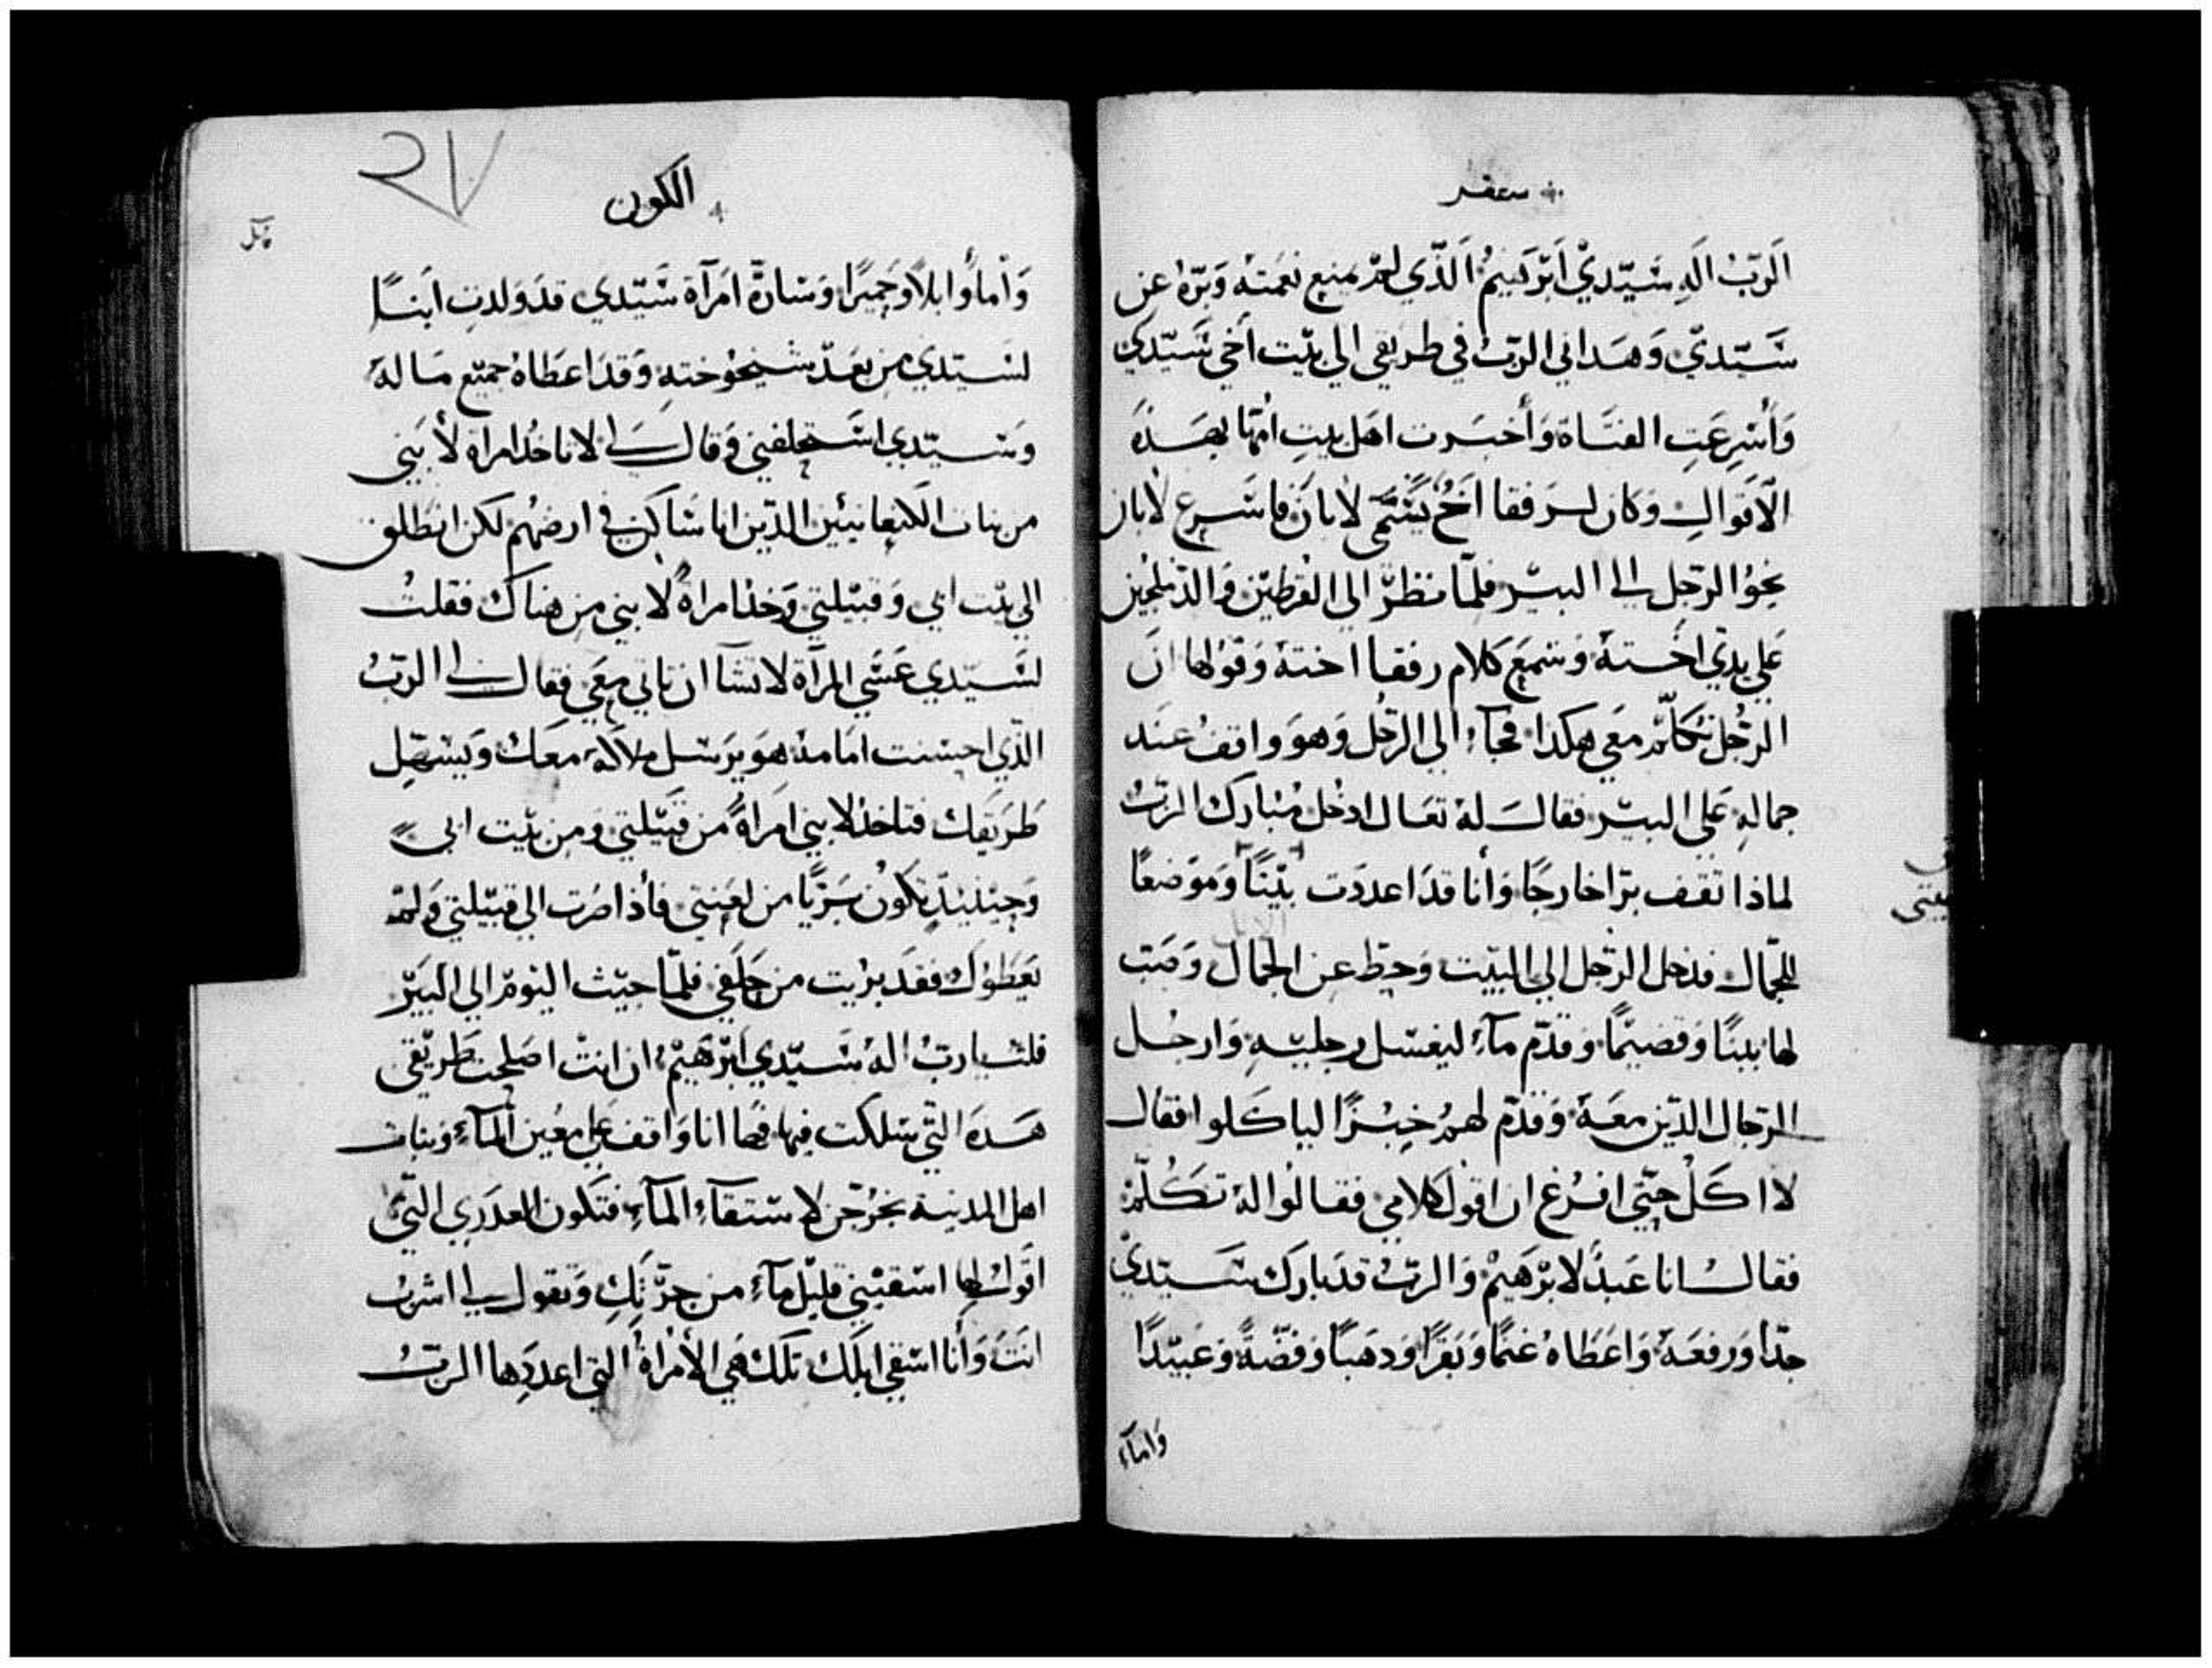 سفر
الرَّبُ الَهِ سَيّدي ابرَهيمُ الذّي لم يمنع نعمته وَبرّهُ عَن
سَيّدي وَهَداني الرّبُ في طريقي الي بيت أخي سَيّدي
وَأسْرعَتِ الفتَاة وَأخبَرت اهل بيتِ امّها بهَذهَ
الاقوالِ وَكان لرفقا أخٌ يُسَمَّى لابَانَ فاسرع لابان
نحوُ الرّجل الى البير فلمّا نظرّ الى القرطين وَالدملجين
علي يدي اختهُ وَسَمعَ كلام رفقا اختهُ وَقوُلها انَ
الرّجُل تكلّم معي هكذا فجآءِ الي الرّجُل وَهوَ واقفُ عندَ
جمالهِ عَلي البير فقالَ لهُ تعَال ادخل مُبارك الرّبُ
لماذا تقف برّاخارجًا وَأنا قدَ اعددَت بَيْتًا وَموَضعًا
بيتى
للجمال فدخل الرّجل الي البيت وَحطّ عن الجمال وَصَبّ
لها تبنًا وَقضيمًا وَقدّم مآءً ليغسل رجليهِ وَارجُل
الرّجال الذين معهُ وَقدّم لهمُ خبْزًا لياكلوا فقال
لا اكل حتّي افرُغ ان اقول كلامي فقالوُا لهُ تكلّم
فقال انا عَبدُ لابرَهيمْ وَالربّ قدَ بارك سَيّدي
جدّا وَرفعَهُ وَاعَطاهُ غنمًا وَبَقرًا وَدهبًا وَفضّةً وَعَبيدًا
وَامآءَ
الكون
٢٧
وَأمآءَ وابلاً وَحميرًا وَسَارةّ امَرآة سَيّدي قدَ وَلدتِ ابنًا
لسيّدي من بعَد شيخوُختهِ وَقدَ اعطَاهُ جميع مَا لهُ
وَسيّدي استحلفني وَقال لى لا تاخُد امراة لأبني
من بنات الكنعانيين الذّين انا سَاكن في ارضهُم لكن انطلق
الي بيْت ابي وَقبيلتي وَخذ امراةً لابني من هناك فقلتُ
لسيّدي عَسَى المرآة لا تشآ ان تاتي معَي فقال لى الربُ
الذّي احسنت امَامهُ هوَ يرَسل ملاكهُ معَك وَيسهّل
طرَيقك فتاخذ لابني امَراةً من قبيلتي وَمن بيت ابي
وَحينئيذٍ تكوُن برَيًا من لعَنتي فأذا صَرت الي قبيلتي وَلمْ
يعَطوُك فقدَ بريْت من حلَفي فلمّا جيت اليوَم الي البَيْر
قلت يا ربُ الهُ سَيّدي ابرَهيْم ان انتْ اصَلحت طرَيقي
هَدهَ التّي سلكت فيها فها انا وَاقف علي معَين المآءِ وَبنات
اهل المدينة يخرُجن لاستقآءِ المآءِ فتكون العدَري التّي
اقوُل لها اسقيْني قليل مآءً من جرّتكِ وَتقول لى اشربُ
انتَ وَأنا اسقي ابلَك تلكَ هَي الأمراةُ التي اعددَها الربّ